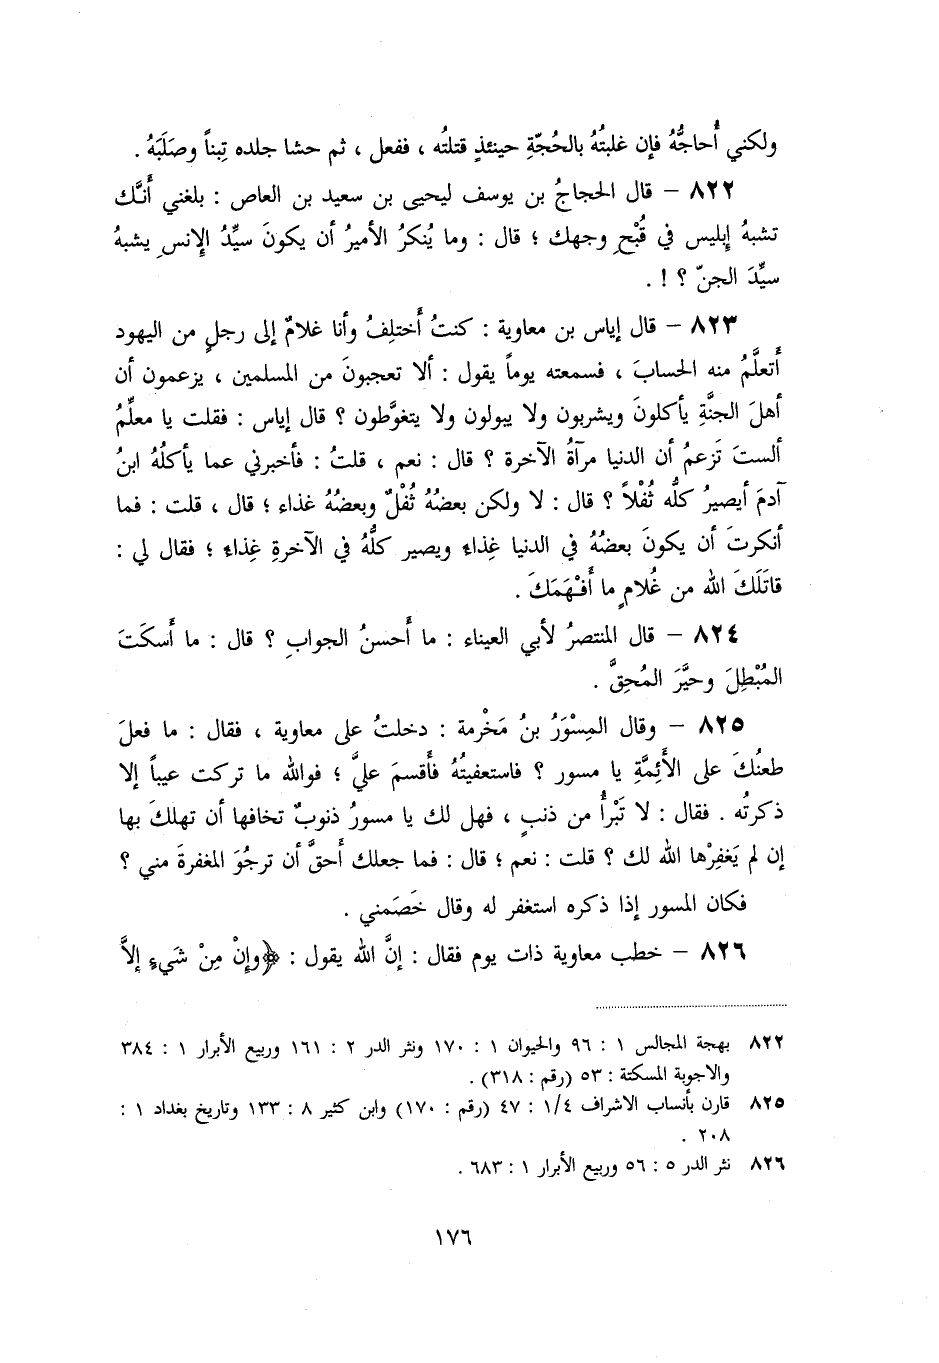 ولكني أُحاجُّهُ فإن غلبتُهُ بالحُجّةِ حينئذٍ قتلتُه ، ففعل ، ثم حشا جلده تِبناً وصَلَبَهُ .
٨٢٢ – قال الحجاجُ بن يوسف ليحيى بن سعيد بن العاص : بلغني أَنَّك
تشبهُ إبليس في قُبْحِ وجهك ؛ قال : وما يُنكرُ الأميرُ أن يكونَ سيِّدُ الإنسِ يشبهُ
سيِّدَ الجنّ ؟ ! .
٨٢٣ – قال إياس بن معاوية : كنتُ أَختلِفُ وأنا غلامٌ إلى رجلٍ من اليهود
أَتعلَّمُ منه الحسابَ ، فسمعته يوماً يقول : ألا تعجبونَ من المسلمين ، يزعمون أن
أهلَ الجنَّةِ يأكلونَ ويشربون ولا يبولون ولا يتغوَّطون ؟ قال إياس : فقلت يا معلِّمُ
ألستَ تَزعمُ أن الدنيا مرآةُ الآخرة ؟ قال : نعم ، قلتُ : فأخبرني عما يأكلُهُ ابنُ
آدمَ أيصيرُ كلُّه ثُفْلاً ؟ قال : لا ولكن بعضُهُ ثُفْلٌ وبعضُهُ غذاء ؛ قال ، قلت : فما
أنكرتَ أن يكونَ بعضُهُ في الدنيا غِذاءً ويصير كلُّهُ في الآخرةِ غِذاءً ؛ فقال لي :
قاتَلَكَ الله من غُلامٍ ما أَفْهَمَكَ .
٨٢٤ – قال المنتصرُ لأبي العيناء : ما أَحسنُ الجوابِ ؟ قال : ما أَسكَتَ
المُبْطِلَ وحيَّرَ المُحِقَّ .
٨٢٥ – وقال المِسْوَرُ بنُ مَخْرمة : دخلتُ على معاوية ، فقال : ما فعلَ
طعنُكَ على الأَئِمَّةِ يا مسور ؟ فاستعفيتُهُ فأَقسمَ عليَّ ؛ فوالله ما تركت عيباً إلا
ذكرتُه . فقال : لا تَبْرأُ من ذنبٍ ، فهل لك يا مسورُ ذنوبٌ تخافها أن تهلكَ بها
إن لم يَغفِرْها الله لك ؟ قلت : نعم ؛ قال : فما جعلك أَحقَّ أن ترجُوَ المغفرةَ مني ؟
فكان المسور إذا ذكره استغفر له وقال خَصَمني .
٨٢٦ – خطب معاوية ذات يوم فقال : إنَّ الله يقول : ﴿وإِنْ مِنْ شَيءٍ إلاَّ
٨٢٢ بهجة المجالس ١ : ٩٦ والحيوان ١ : ١٧٠ ونثر الدر ٢ : ١٦١ وربيع الأبرار ١ : ٣٨٤
والاجوبة المسكتة : ٥٣ (رقم : ٣١٨) .
٨٢٥ قارن بأنساب الاشراف ١/٤ : ٤٧ (رقم : ١٧٠) وابن كثير ٨ : ١٣٣ وتاريخ بغداد ١ :
٢٠٨ .
٨٢٦ نثر الدر ٥ : ٥٦ وربيع الأبرار ١ : ٦٨٣ .
١٧٦